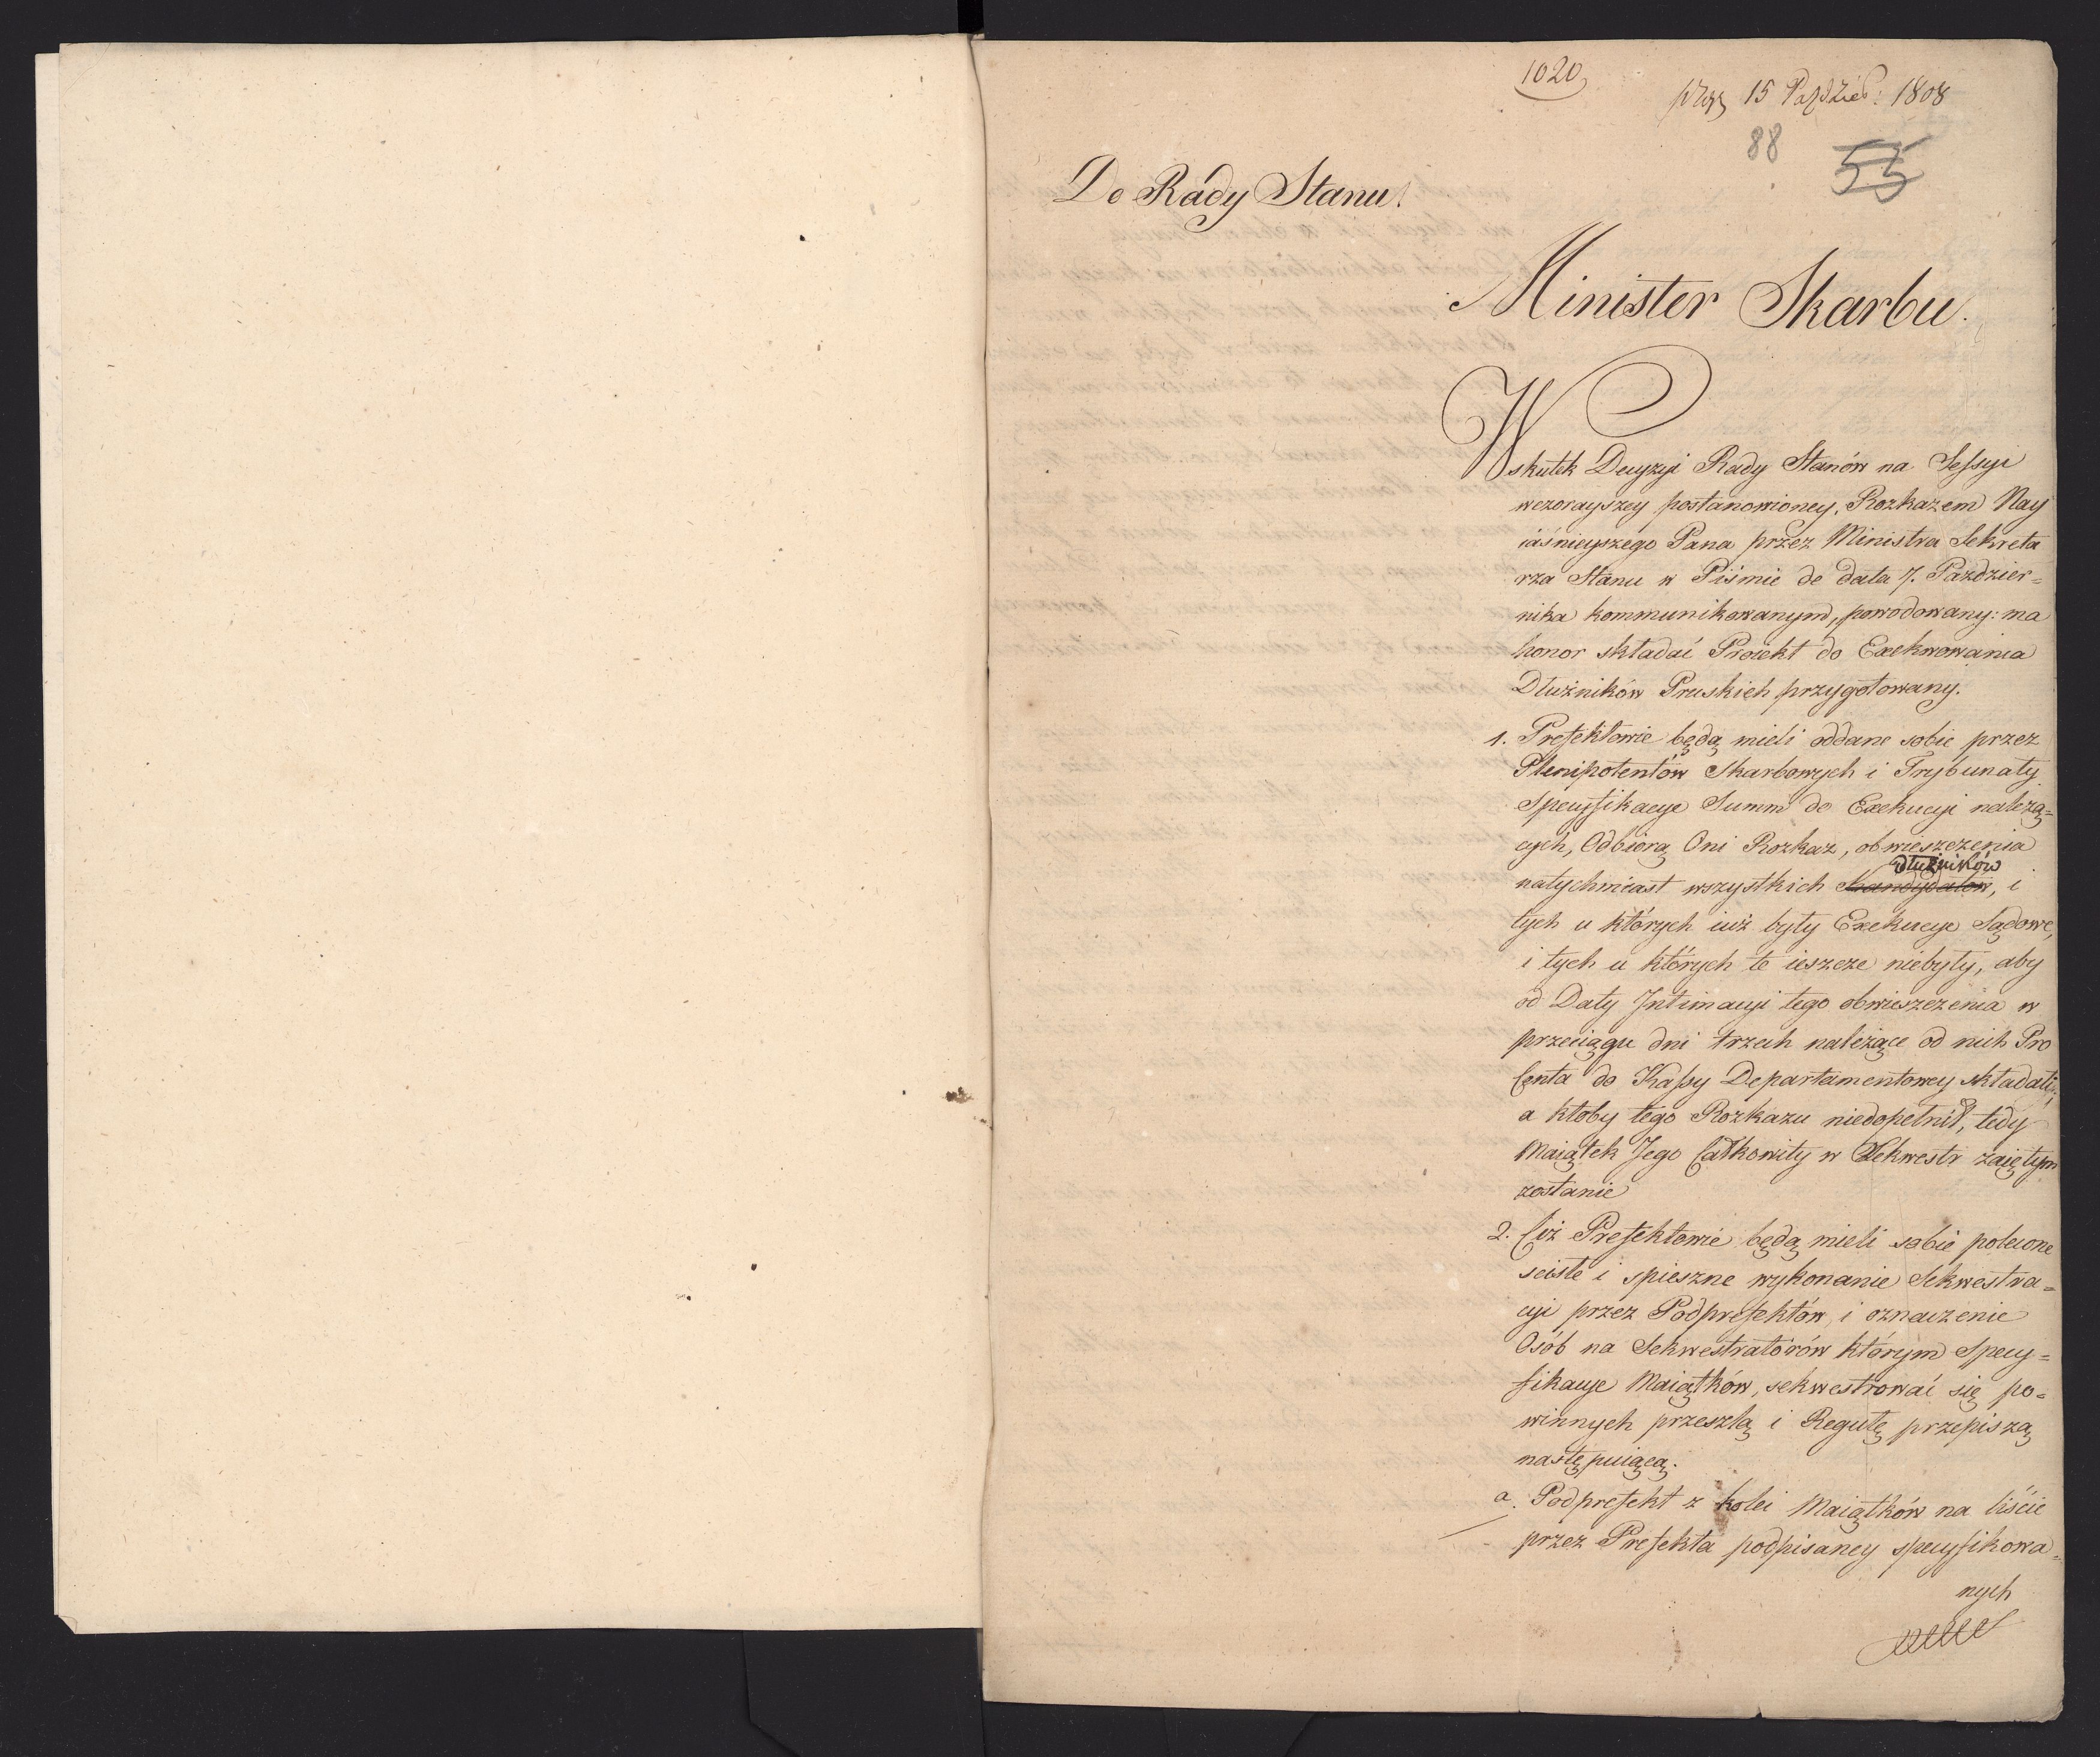 1020
15 Paździer: 1808
88
55
Do Rady Stanu!
Minister Skarbu.
W skutek Decyzyi Rady Stanów na Sessyi
wczorayszey postanowioney, Rozkazem Nay
iaśnieyszego Pana przez Ministra Sekreta
rza Stanu w Piśmie de data 7. Paździer=
nika kommunikowanym, powodowany: ma
honor składać Proiekt do Exekwowania
Dłużników Pruskich przygotowany.
1. Prefektowie będą mieli oddane sobie przez
Plenipotentów Skarbowych i Trybunały
Specyfikacye Summ do Exekucyi należą=
cych, Odbiorą Oni Rozkaz, obwieszczenia
dłużników
natychmiast wszystkich Kandydatów, i
tych u których iuż były Exekucye Sądowe,
i tych u których te ieszcze niebyły, aby
od Daty Intimacyi tego obwieszczenia w
przeciągu dni trzech należące od nich Pro
centa do Kassy Departamentowey składali;
a ktoby tego Rozkazu niedopełnił, tedy
Maiątek Jego Całkowity w Sekwestr zaiętym
zostanie
2. Ciż Prefektowie będą mieli sobie polecone
ściste i spieszne wykonanie Sekwestra=
cyi przez Podprefektów, i oznaczenie
Osób na Sekwestratorów którym Specy=
fikacye Maiątków, sekwestrować się po=
winnych przeszlą i Regułę przepiszą
następuiącą.
a. Podprefekt z kolei Maiątków na liście
przez Prefekta podpisaney specyfikowa=
nych